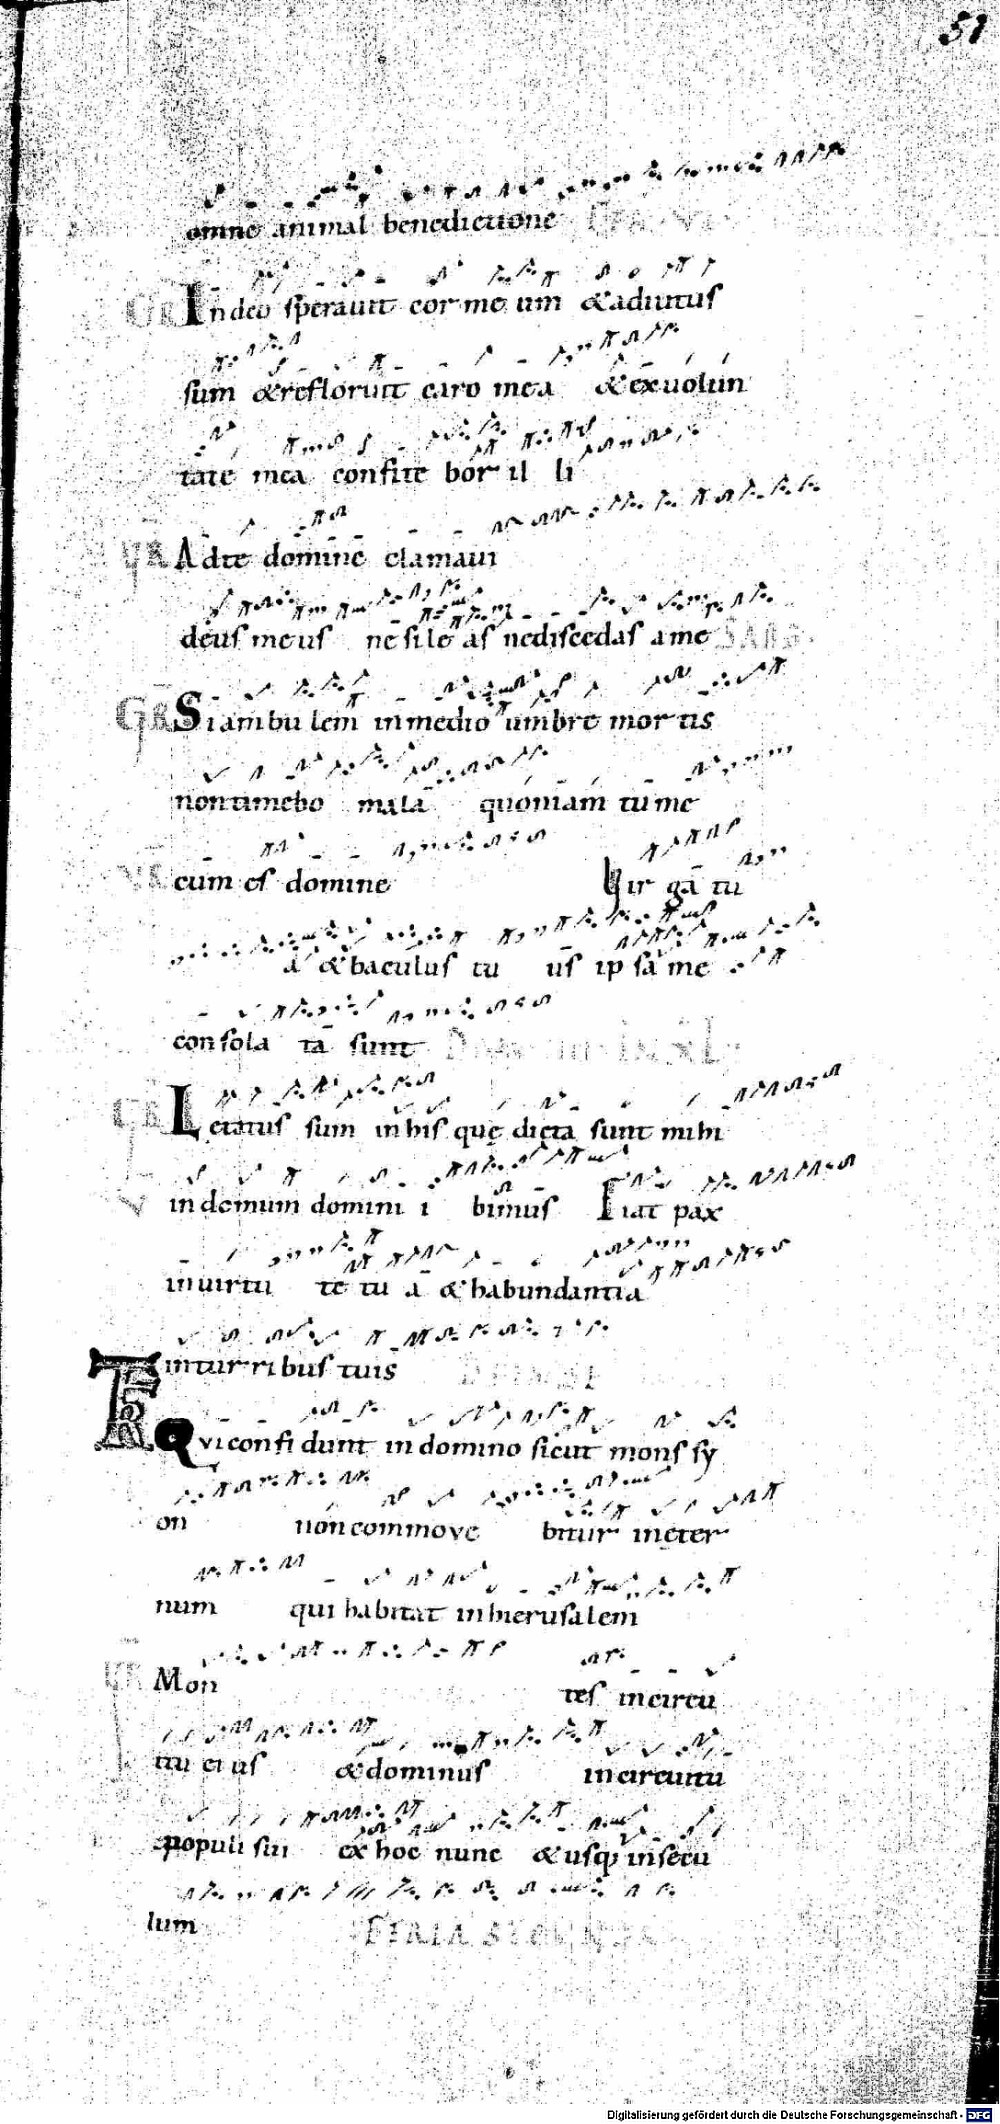 51
omne animal benedictione
GR In deo speravit cor me um & adiutus
sum & refloruit caro mea & ex uolun
tate mea confite bor il li
VR Ad te domine clamaui
deus me us ne sile as ne discedas a me SABB.
GR Si ambu lem in medio umbre mor tis
non timebo mala quoniam tu me
VR cum es domine Vir ga tu
a & baculus tu us ip sa me
con sola ta sunt
GR L ętatus sum in his quę dicta sunt mihi
V in domum domini i bimus Fiat pax
in uirtu te tu a & habundantia
in tur ri bus tuis
TR Qui confi dunt in domino sicut mons sy
on non commove bitur in ęter
num qui habitat in hierusalem
VR Mon tes in circu
itu ei us & dominus in circuitu
populi sui ex hoc nunc & usq in secu
lum FERIA SECUNDA
Digitalisierung gefördert durch die Deutsche Forschungsgemeinschaft - DFG